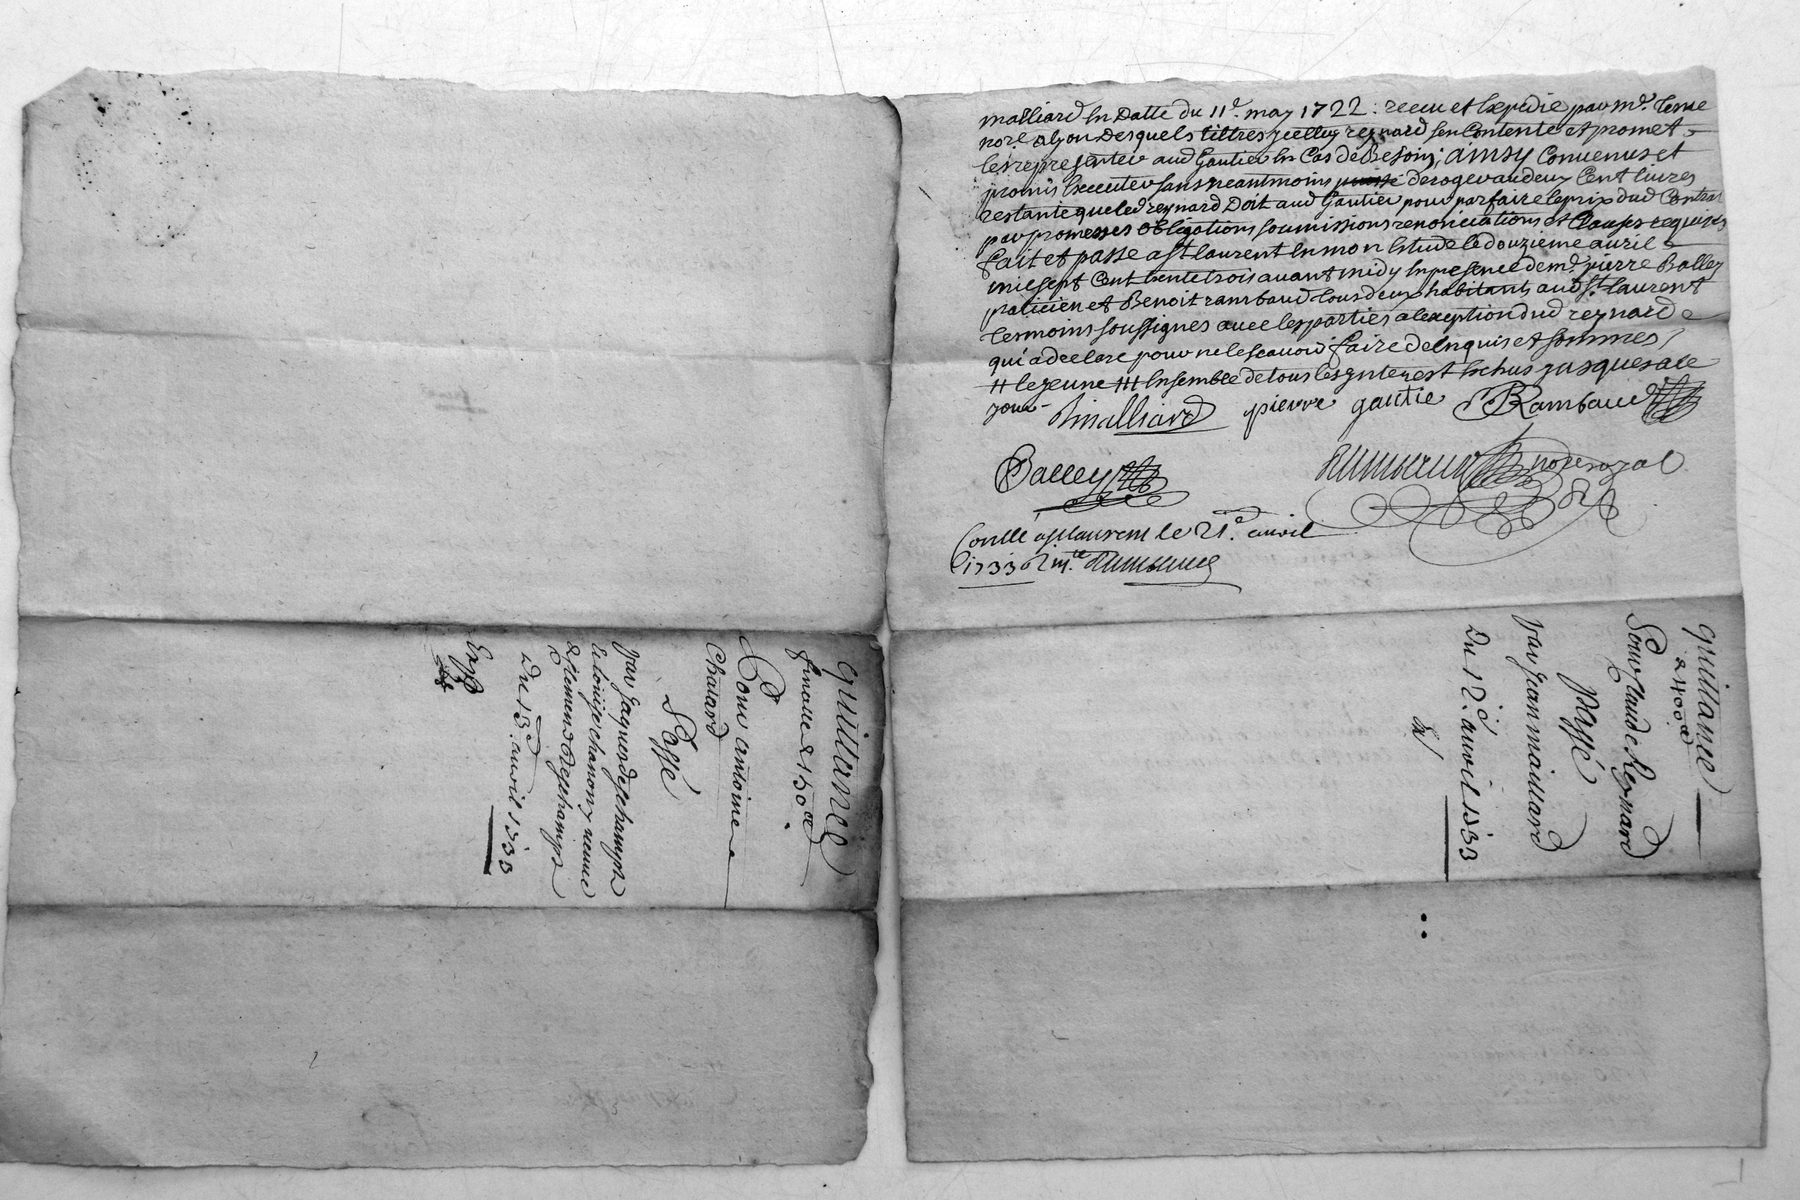 malliard En Datte du 11e. may 1722. receu et Expedié par me. terne
nore. a lyon Desquels tiltres yeelluy reynard sen Contente et promet
les representer aud Gautier En Cas de Besoin; ainsy Convenus et
promis Executer sans neantmoins deroger aud deux Cent livres
restante que led reynard Doit aud Gautier pour parfaire le prix dud Contrat
par promesses obligations soumissions renonciations et Clauses requises
fait et passé a st laurent En mon Estude le douzieme avril
mil sept Cent trente trois avant midy En presence de me. pierre Balley
praticien et Benoit rambaud tous deux habitants aud st. laurent
temoins soussignes avec les parties a lexception dud reynard
qui a declaré pour ne le scavoir faire de Enquis et sommés
# le jeune ## Ensemble de tous les Interest Echus jusques a ce
jour
J malliard pierre gautie BRambaud
Balley nore royal
Conllé a st laurent le 21e. avril
1733
quittance
2400
Pour Claude Reynard
Passé
par Jean maillard
Du 12e. avril 1733
quittance
finalle 2150
Pour antoine
Chatard
Passé
par Jaques deschamps
& louise chanony veuve
Du 13e. avril 1733
Exp